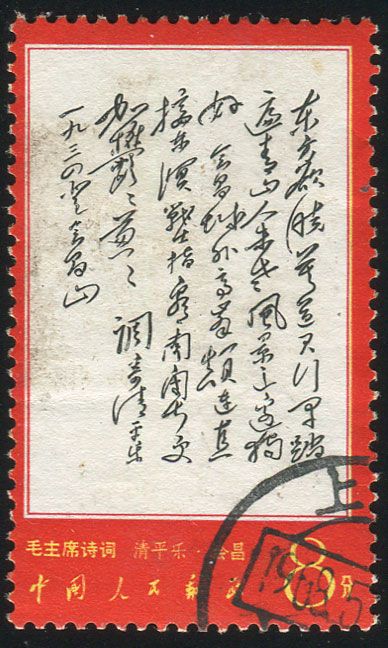 东方欲晓莫道君行早踏
遍青山人未老风景这边独
好会昌城外高峰颠连直
接东溟戰士指看南粤更
加鬱鬱葱葱 調寄清平乐
一九三四登会昌山
毛主席诗词 清平乐·会昌
中国人民邮政 8分
上